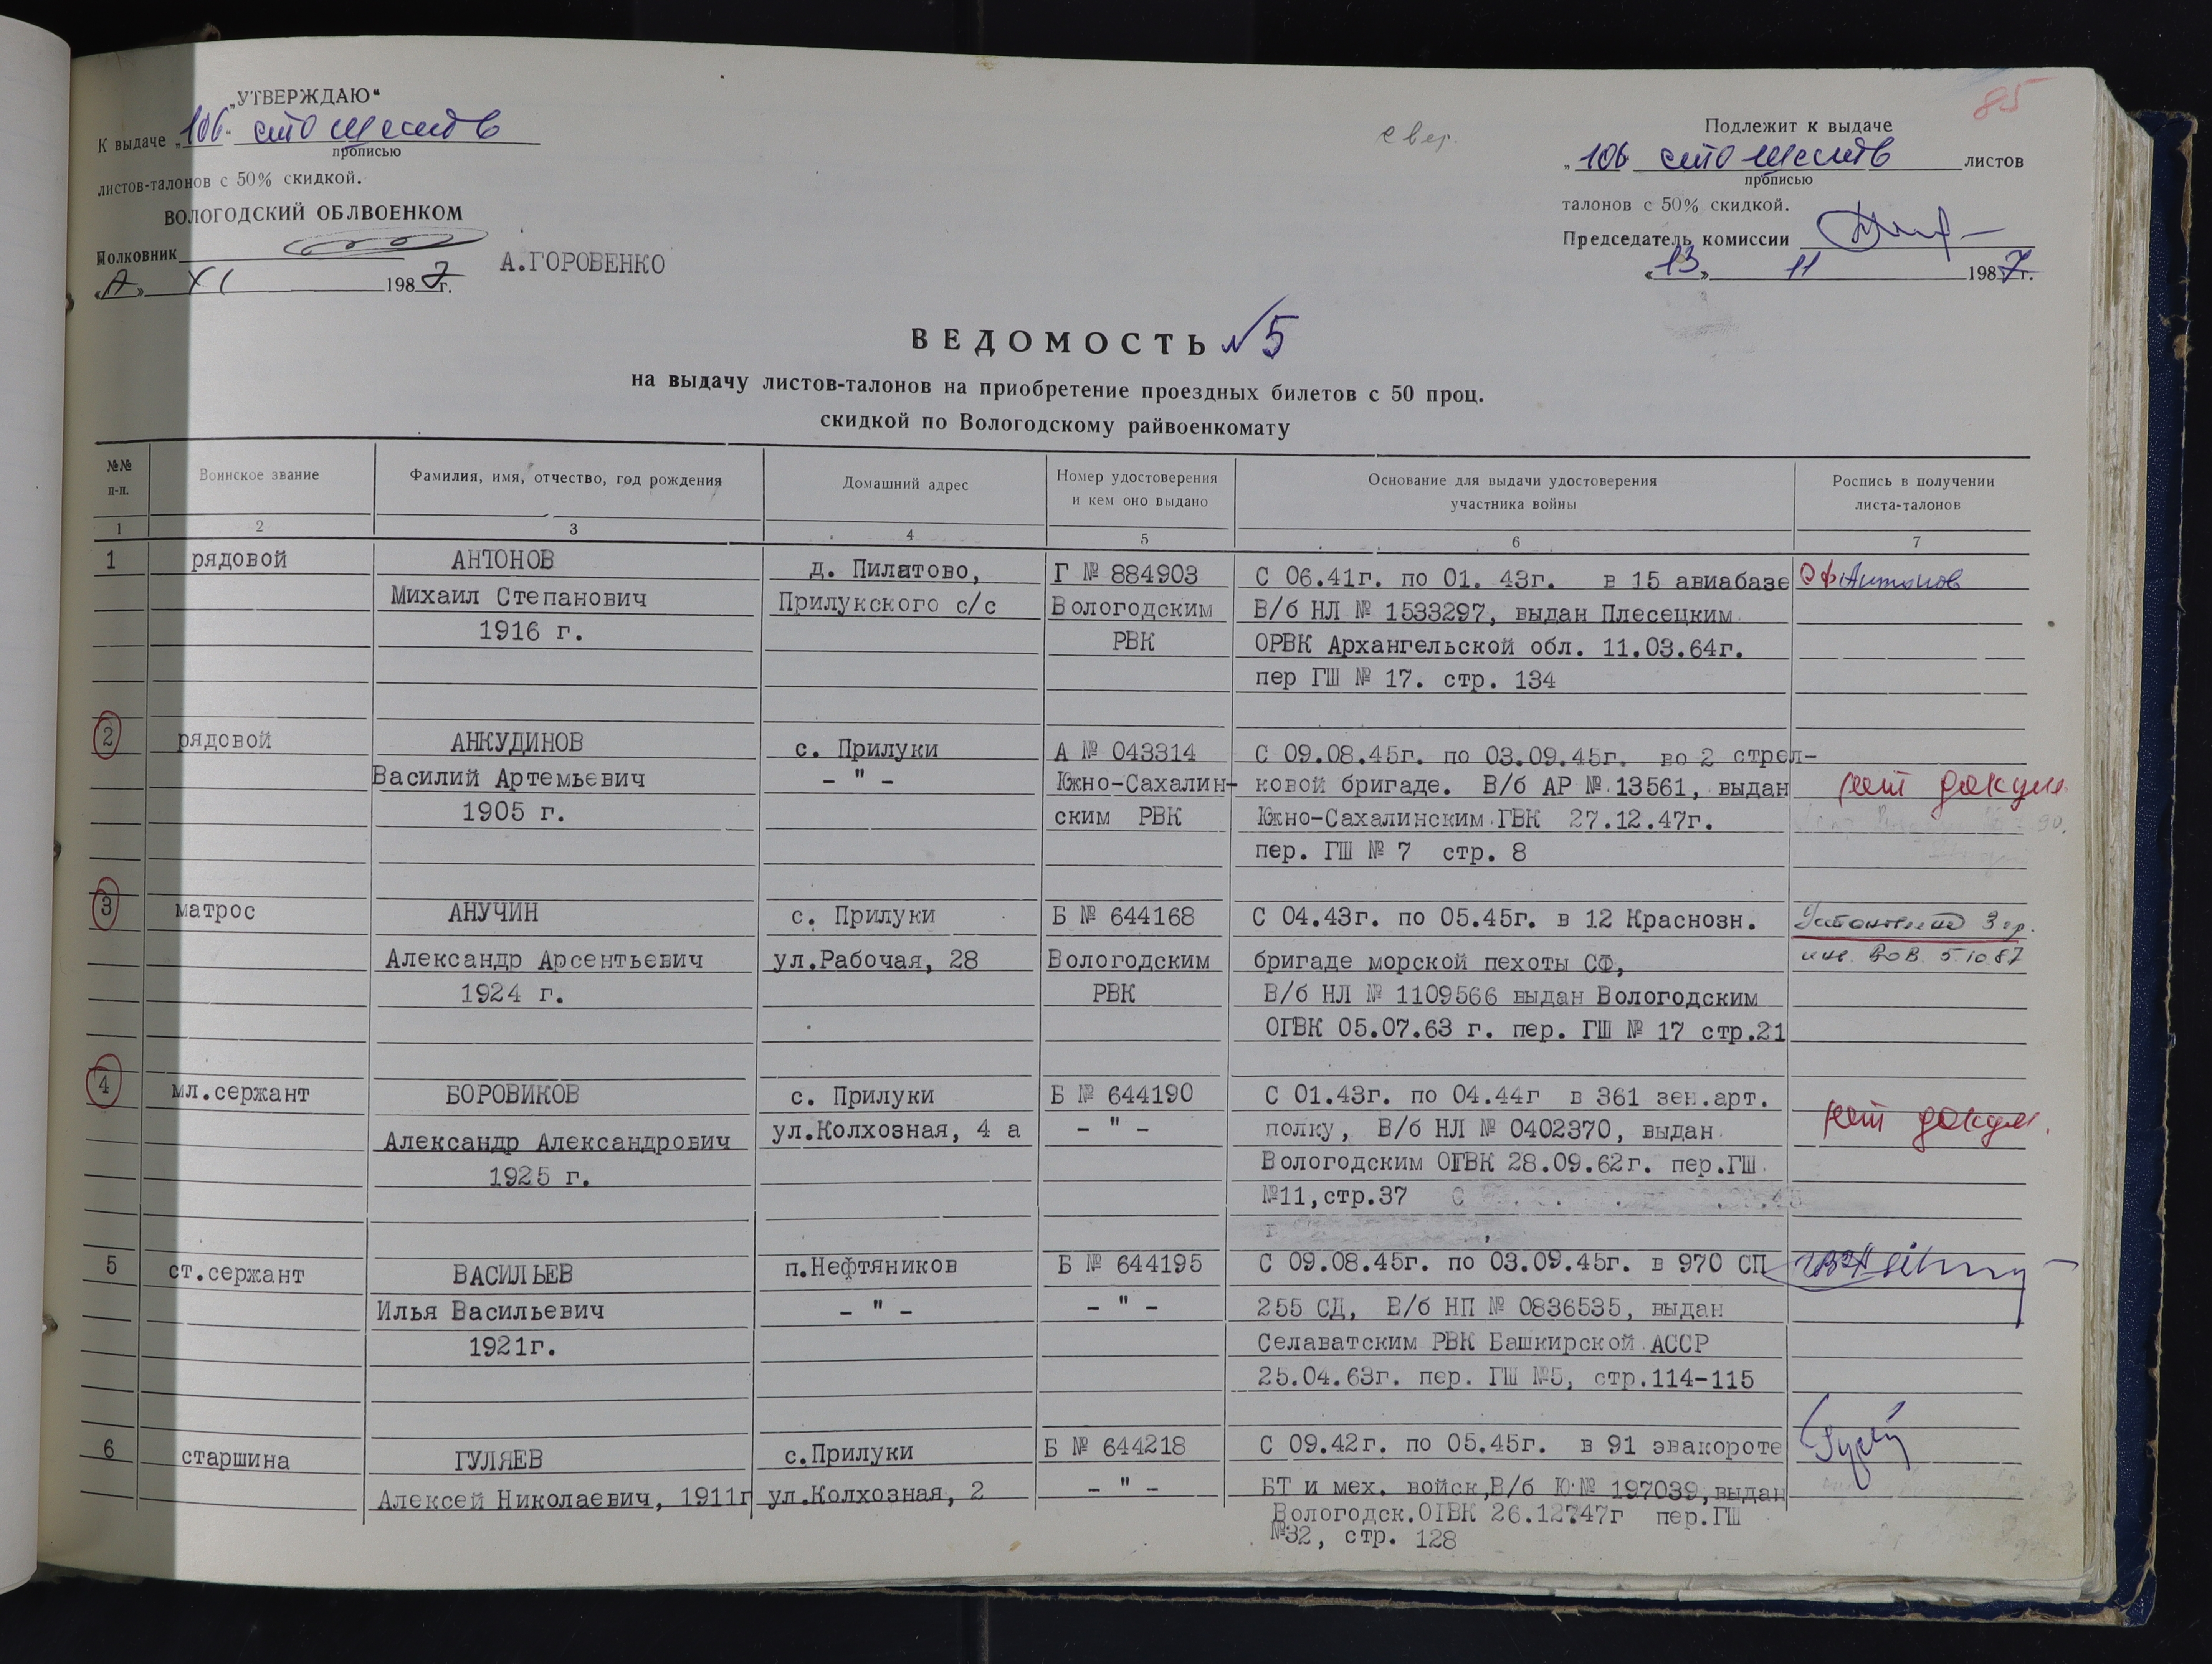 85
„УТВЕРЖДАЮ“
К выдаче „106“ сто шесть
прописью
листов-талонов с 50% скидкой.
ВОЛОГОДСКИЙ ОБЛВОЕНКОМ
Полковник А.ГОРОВЕНКО
XI 1987г.
свер.
Подлежит к выдаче
„106 сто шесть листов
прописью
талонов с 50% скидкой.
Председатель комиссии
«13» 11 1987г.
ВЕДОМОСТЬ №5
на выдачу листов-талонов на приобретение проездных билетов с 50 проц.
скидкой по Вологодскому райвоенкомату
№№ п-п. Воинское звание Фамилия, имя, отчество, год рождения Домашний адрес Номер удостоверения и кем оно выдано Основание для выдачи удостоверения участника войны Роспись в получении листа-талонов
1 2 3 4 5 6 7
1 рядовой АНТОНОВ д. Пилатово, Г № 884903 С 06.41г. по 01. 43г. в 15 авиабазе Антонов
Михаил Степанович Прилукского с/с Вологодским В/б НЛ № 1533297, выдан Плесецким
1916 г. РВК ОРВК Архангельской обл. 11.03.64г.
пер ГШ № 17. стр. 134
2 рядовой АНКУДИНОВ с. Прилуки А № 043314 С 09.08.45г. по 03.09.45г. во 2 стрел-
Василий Артемьевич - " - Южно-Сахалин- ковой бригаде. В/б АР № 13561, выдан нет докум.
1905 г. ским РВК Южно-Сахалинским ГВК 27.12.47г.
пер. ГШ № 7 стр. 8
3 матрос АНУЧИН с. Прилуки Б № 644168 С 04.43г. по 05.45г. в 12 Краснозн. 3 гр.
Александр Арсентьевич ул.Рабочая, 28 Вологодским бригаде морской пехоты СФ, инв. ВОВ 5.10.87
1924 г. РВК В/б НЛ № 1109566 выдан Вологодским
ОГВК 05.07.63 г. пер. ГШ № 17 стр.21
4 мл.сержант БОРОВИКОВ с. Прилуки Б № 644190 С 01.43г. по 04.44г в 361 зен.арт.
Александр Александрович ул.Колхозная, 4 а - " - полку, В/б НЛ № 0402370, выдан нет докум.
1925 г. Вологодским ОГВК 28.09.62г. пер.ГШ
№11,стр.37
5 ст.сержант ВАСИЛЬЕВ п.Нефтяников Б № 644195 С 09.08.45г. по 03.09.45г. в 970 СП
Илья Васильевич - " - - " - 255 СД, В/б НП № 0836535, выдан
1921г. Селаватским РВК Башкирской АССР
25.04.63г. пер. ГШ №5, стр.114-115
6 старшина ГУЛЯЕВ с.Прилуки Б № 644218 С 09.42г. по 05.45г. в 91 эвакороте
Алексей Николаевич, 1911г ул.Колхозная, 2 - " - БТ и мех. войск,В/б Ю № 197039,выдан
Вологодск.ОГВК 26.12?47г пер.ГШ
№32, стр. 128